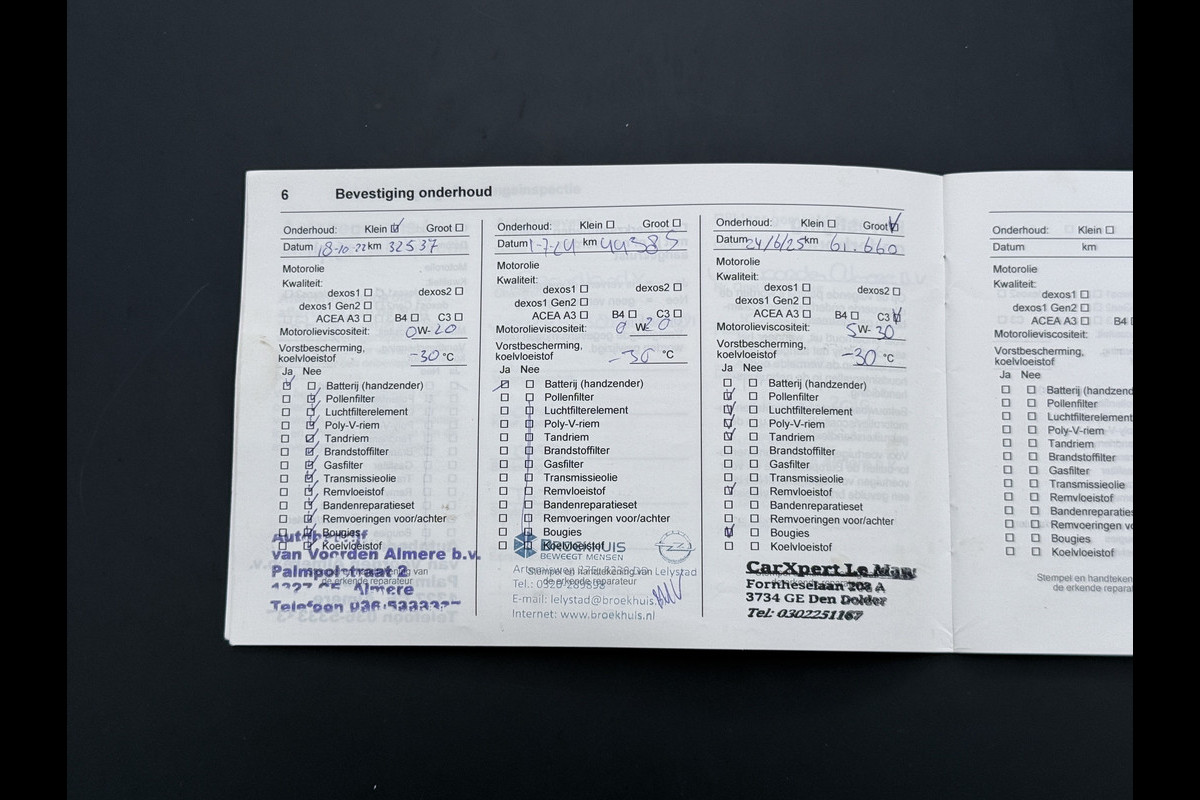 6 Bevestiging onderhoud
Onderhoud: Klein Groot
Datum 18-10-22 km 32537
Motorolie
Kwaliteit:
dexos1 dexos2
dexos1 Gen2
ACEA A3 B4 C3
Motorolieviscositeit: 0W-20
Vorstbescherming,
koelvloeistof -30 °C
Ja Nee
Batterij (handzender)
Pollenfilter
Luchtfilterelement
Poly-V-riem
Tandriem
Brandstoffilter
Gasfilter
Transmissieolie
Remvloeistof
Bandenreparatieset
Remvoeringen voor/achter
Bougies
Koelvloeistof
Autobedrijf
van Voorden Almere b.v.
Palmpolstraat 2
Almere
Telefoon
de erkende reparateur
Onderhoud: Klein Groot
Datum 1-7-24 km 44385
Motorolie
Kwaliteit:
dexos1 dexos2
dexos1 Gen2
ACEA A3 B4 C3
Motorolieviscositeit: 0 W 20
Vorstbescherming,
koelvloeistof -30 °C
Ja Nee
Batterij (handzender)
Pollenfilter
Luchtfilterelement
Poly-V-riem
Tandriem
Brandstoffilter
Gasfilter
Transmissieolie
Remvloeistof
Bandenreparatieset
Remvoeringen voor/achter
Bougies
Koelvloeistof
BROEKHUIS
BEWEEGT MENSEN
Stempel en handtekening van
Lelystad
de erkende reparateur
Tel.: 0320
E-mail: lelystad@broekhuis.
Internet: www.broekhuis.nl
Onderhoud: Klein Groot
Datum 24/6/25 km 61.660
Motorolie
Kwaliteit:
dexos1 dexos2
dexos1 Gen2
ACEA A3 B4 C3
Motorolieviscositeit: 5W-30
Vorstbescherming,
koelvloeistof -30 °C
Ja Nee
Batterij (handzender)
Pollenfilter
Luchtfilterelement
Poly-V-riem
Tandriem
Brandstoffilter
Gasfilter
Transmissieolie
Remvloeistof
Bandenreparatieset
Remvoeringen voor/achter
Bougies
Koelvloeistof
CarXpert Le Maw
Fornheselaan 208 A
3734 GE Den Dolder
Tel: 0302251167
Onderhoud: Klein
Datum km
Motorolie
Kwaliteit:
dexos1
dexos1 Gen2
ACEA A3 B4
Motorolieviscositeit:
Vorstbescherming,
koelvloeistof
Ja Nee
Batterij (handzender
Pollenfilter
Luchtfilterelement
Poly-V-riem
Tandriem
Brandstoffilter
Gasfilter
Transmissieolie
Remvloeistof
Bandenreparaties
Remvoeringen vo
Bougies
Koelvloeistof
Stempel en handteken
de erkende repara